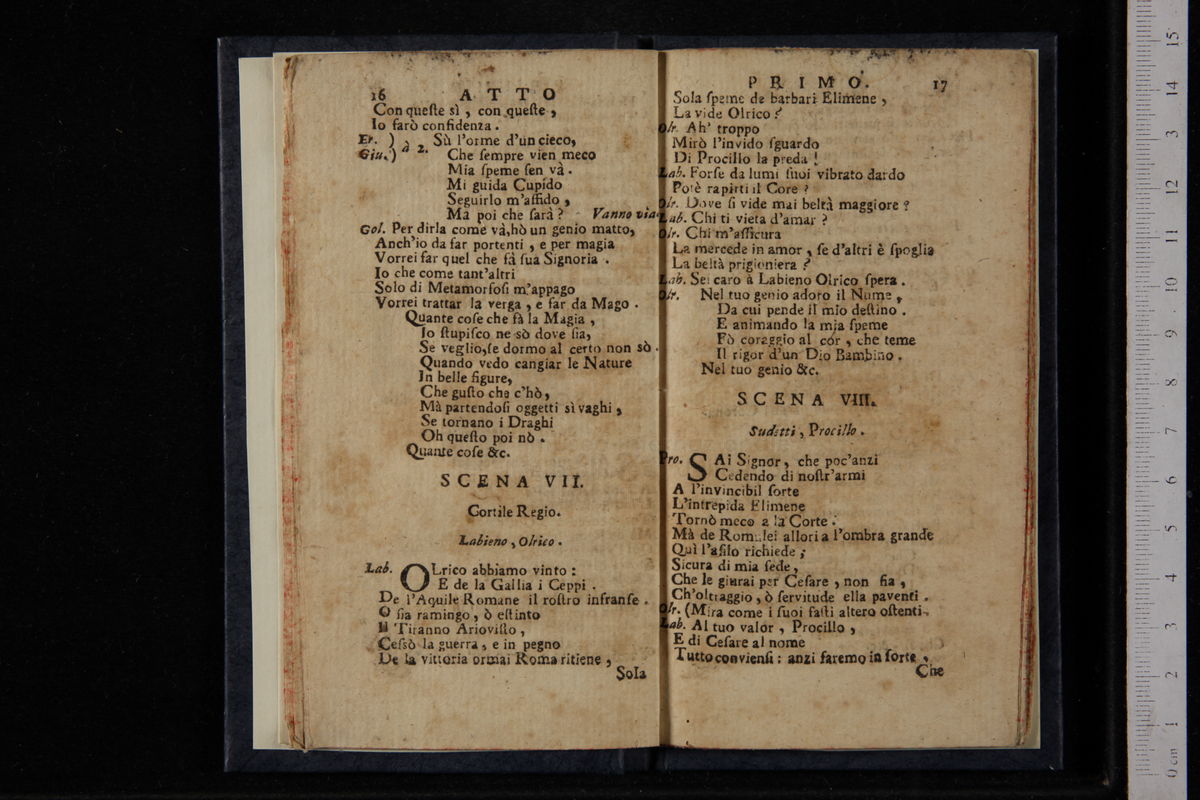 16 ATTO
Con queſte sì, con queſte,
Io farò confidenza.
Er. ) à 2. Sù l'orme d'un cieco,
Giu.) Che ſempre vien meco
Mia ſpeme ſen và.
Mi guida Cupido
Seguirlo m'affido,
Ma poi che ſarà? Vanno via.
Gol. Per dirla come và, hò un genio matto,
Anch'io da far portenti, e per magia
Vorrei far quel che fà ſua Signoria.
Io che come tant'altri
Solo di Metamorfoſi m'appago
Vorrei trattar la verga, e far da Mago.
Quante coſe che fà la Magia,
Io ſtupiſco ne sò dove ſia,
Se veglio, ſe dormo al certo non sò.
Quando vedo cangiar le Nature
In belle figure,
Che guſto che c'hò,
Mà partendoſi oggetti sì vaghi,
Se tornano i Draghi
Oh queſto poi nò.
Quante coſe &c.
SCENA VII.
Cortile Regio.
Labieno, Olrico.
Lab. OLrico abbiamo vinto:
E de la Gallia i Ceppi.
De l'Aquile Romane il roſtro infranſe.
O ſia ramingo, ò eſtinto
Il Tiranno Arioviſto,
Ceſsò la guerra, e in pegno
De la vittoria ormai Roma ritiene,
Sola
PRIMO. 17
Sola ſpeme de barbari Elimene,
La vide Olrico?
Olr. Ah' troppo
Mirò l'invido ſguardo
Di Procillo la preda!
Lab. Forſe da lumi ſuoi vibrato dardo
Potè rapirti il Core?
Olr. Dove ſi vide mai beltà maggiore?
Lab. Chi ti vieta d'amar?
Olr. Chi m'aſſicura
La mercede in amor, ſe d'altri è ſpoglia
La beltà prigioniera?
Lab. Sei caro à Labieno Olrico ſpera.
Olr. Nel tuo genio adoro il Nume,
Da cui pende il mio deſtino.
E animando la mia ſpeme
Fò coraggio al cór, che teme
Il rigor d'un Dio Bambino.
Nel tuo genio &c.
SCENA VIII.
Sudetti, Procillo.
Pro. SAi Signor, che poc'anzi
Cedendo di noſtr'armi
A l'invincibil ſorte
L'intrepida Elimene
Tornò meco a la Corte:
Mà de Romulei allori a l'ombra grande
Quì l'aſilo richiede;
Sicura di mia fede,
Che le giurai per Ceſare, non fia,
Ch'oltraggio, ò ſervitude ella paventi.
Olr. (Mira come i ſuoi faſti altero oſtenti.
Lab. Al tuo valor, Procillo,
E di Ceſare al nome
Tutto convienſi: anzi faremo in ſorte,
Che